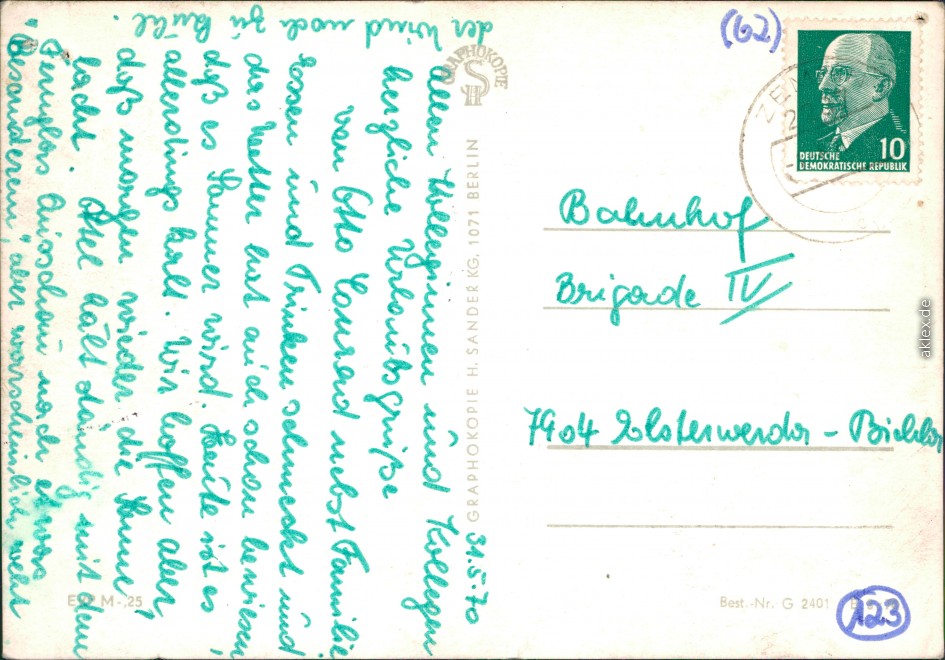 31.5.70
Allen Kolleginnen und Kollegen
herzliche Urlaubsgrüße
von Otto Konrad nebst Familie
Essen und Trinken schmeckt und
das Wetter hat auch schon bewiesen,
daß es Sommer wird. Heute ist es
allerdings kalt. Wir hoffen aber,
daß morgen wieder die Sonne
lacht. hält ständig mit dem
Fernglas Ausschau nach etwas
Besonderem, aber warscheinlich weht
der Wind noch zu kühl.
GRAPHOKOPIE
H S
GRAPHOKOPIE H. SANDER KG, 1071 BERLIN
EVP M -,25
(62)
DEUTSCHE
DEMOKRATISCHE REPUBLIK
10
Bahnhof
Brigade IV
7904 Elsterwerda - Biehla
Best.-Nr. G 2401
123
aklex.de